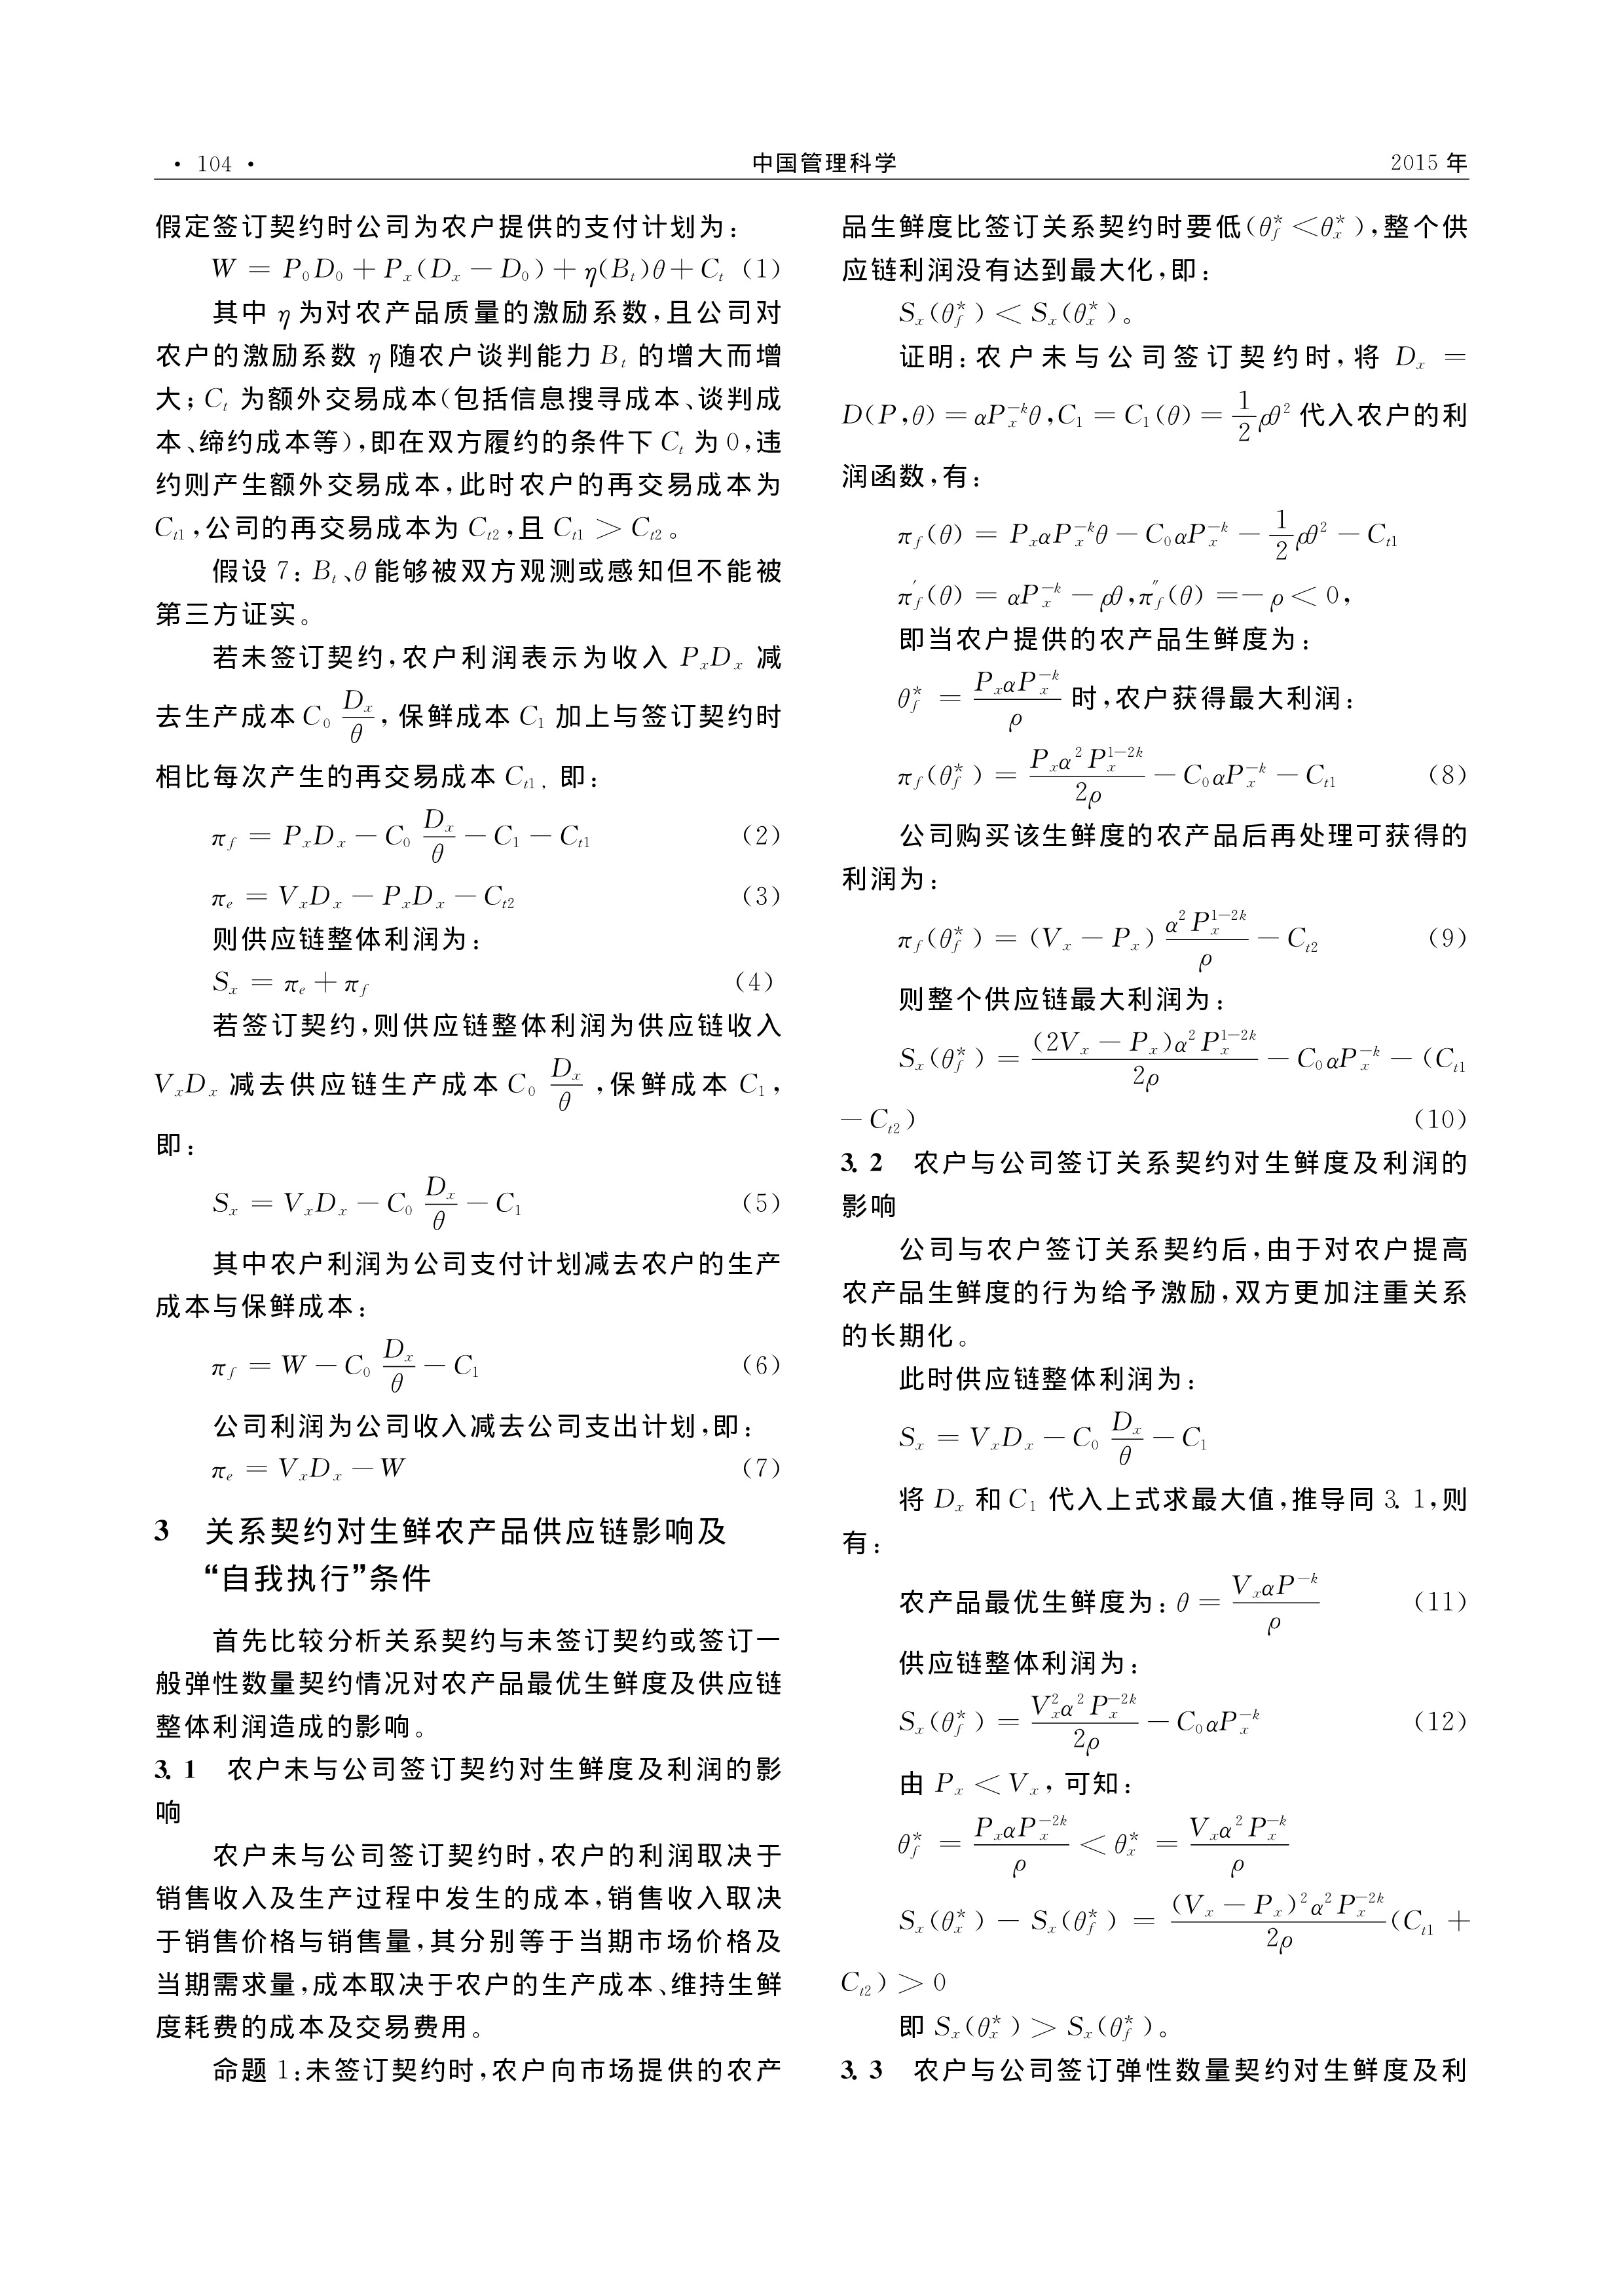 · 104 ·
中国管理科学
2015 年
假定签订契约时公司为农户提供的支付计划为：
W = P₀D₀ + Pₓ(Dₓ − D₀) + η(Bₜ)θ + Cₜ (1)
其中 η 为对农产品质量的激励系数，且公司对
农户的激励系数 η 随农户谈判能力 Bₜ 的增大而增
大；Cₜ 为额外交易成本（包括信息搜寻成本、谈判成
本、缔约成本等），即在双方履约的条件下 Cₜ 为 0，违
约则产生额外交易成本，此时农户的再交易成本为
C_{t1}，公司的再交易成本为 C_{t2}，且 C_{t1} > C_{t2}。
假设 7：Bₜ、θ 能够被双方观测或感知但不能被
第三方证实。
若未签订契约，农户利润表示为收入 PₓDₓ 减
去生产成本 C₀ \frac{Dₓ}{θ}，保鲜成本 C₁ 加上与签订契约时
相比每次产生的再交易成本 C_{t1}，即：
π_f = PₓDₓ − C₀ \frac{Dₓ}{θ} − C₁ − C_{t1} (2)
π_e = VₓDₓ − PₓDₓ − C_{t2} (3)
则供应链整体利润为：
Sₓ = π_e + π_f (4)
若签订契约，则供应链整体利润为供应链收入
VₓDₓ 减去供应链生产成本 C₀ \frac{Dₓ}{θ}，保鲜成本 C₁，
即：
Sₓ = VₓDₓ − C₀ \frac{Dₓ}{θ} − C₁ (5)
其中农户利润为公司支付计划减去农户的生产
成本与保鲜成本：
π_f = W − C₀ \frac{Dₓ}{θ} − C₁ (6)
公司利润为公司收入减去公司支出计划，即：
π_e = VₓDₓ − W (7)
3 关系契约对生鲜农产品供应链影响及
“自我执行”条件
首先比较分析关系契约与未签订契约或签订一
般弹性数量契约情况对农产品最优生鲜度及供应链
整体利润造成的影响。
3.1 农户未与公司签订契约对生鲜度及利润的影
响
农户未与公司签订契约时，农户的利润取决于
销售收入及生产过程中发生的成本，销售收入取决
于销售价格与销售量，其分别等于当期市场价格及
当期需求量，成本取决于农户的生产成本、维持生鲜
度耗费的成本及交易费用。
命题 1：未签订契约时，农户向市场提供的农产
品生鲜度比签订关系契约时要低（θ_f^* < θ_x^*），整个供
应链利润没有达到最大化，即：
Sₓ(θ_f^*) < Sₓ(θ_x^*)。
证明：农户未与公司签订契约时，将 Dₓ =
D(P,θ) = αP_x^{-k}θ，C₁ = C₁(θ) = \frac{1}{2}ρθ² 代入农户的利
润函数，有：
π_f(θ) = PₓαP_x^{-k}θ − C₀αP_x^{-k} − \frac{1}{2}ρθ² − C_{t1}
π_f^{'}(θ) = αP_x^{-k} − ρθ，π_f^{''}(θ) = − ρ < 0，
即当农户提供的农产品生鲜度为：
θ_f^* = \frac{PₓαP_x^{-k}}{ρ} 时，农户获得最大利润：
π_f(θ_f^*) = \frac{Pₓα²P_x^{1-2k}}{2ρ} − C₀αP_x^{-k} − C_{t1} (8)
公司购买该生鲜度的农产品后再处理可获得的
利润为：
π_f(θ_f^*) = (Vₓ − Pₓ) \frac{α²P_x^{1-2k}}{ρ} − C_{t2} (9)
则整个供应链最大利润为：
Sₓ(θ_f^*) = \frac{(2Vₓ − Pₓ)α²P_x^{1-2k}}{2ρ} − C₀αP_x^{-k} − (C_{t1}
− C_{t2}) (10)
3.2 农户与公司签订关系契约对生鲜度及利润的
影响
公司与农户签订关系契约后，由于对农户提高
农产品生鲜度的行为给予激励，双方更加注重关系
的长期化。
此时供应链整体利润为：
Sₓ = VₓDₓ − C₀ \frac{Dₓ}{θ} − C₁
将 Dₓ 和 C₁ 代入上式求最大值，推导同 3.1，则
有：
农产品最优生鲜度为：θ = \frac{VₓαP^{-k}}{ρ} (11)
供应链整体利润为：
Sₓ(θ_f^*) = \frac{V_x^2α²P_x^{-2k}}{2ρ} − C₀αP_x^{-k} (12)
由 Pₓ < Vₓ，可知：
θ_f^* = \frac{PₓαP_x^{-2k}}{ρ} < θ_x^* = \frac{Vₓα²P_x^{-k}}{ρ}
Sₓ(θ_x^*) − Sₓ(θ_f^*) = \frac{(Vₓ − Pₓ)²α²P_x^{-2k}}{2ρ}(C_{t1} +
C_{t2}) > 0
即 Sₓ(θ_x^*) > Sₓ(θ_f^*)。
3.3 农户与公司签订弹性数量契约对生鲜度及利